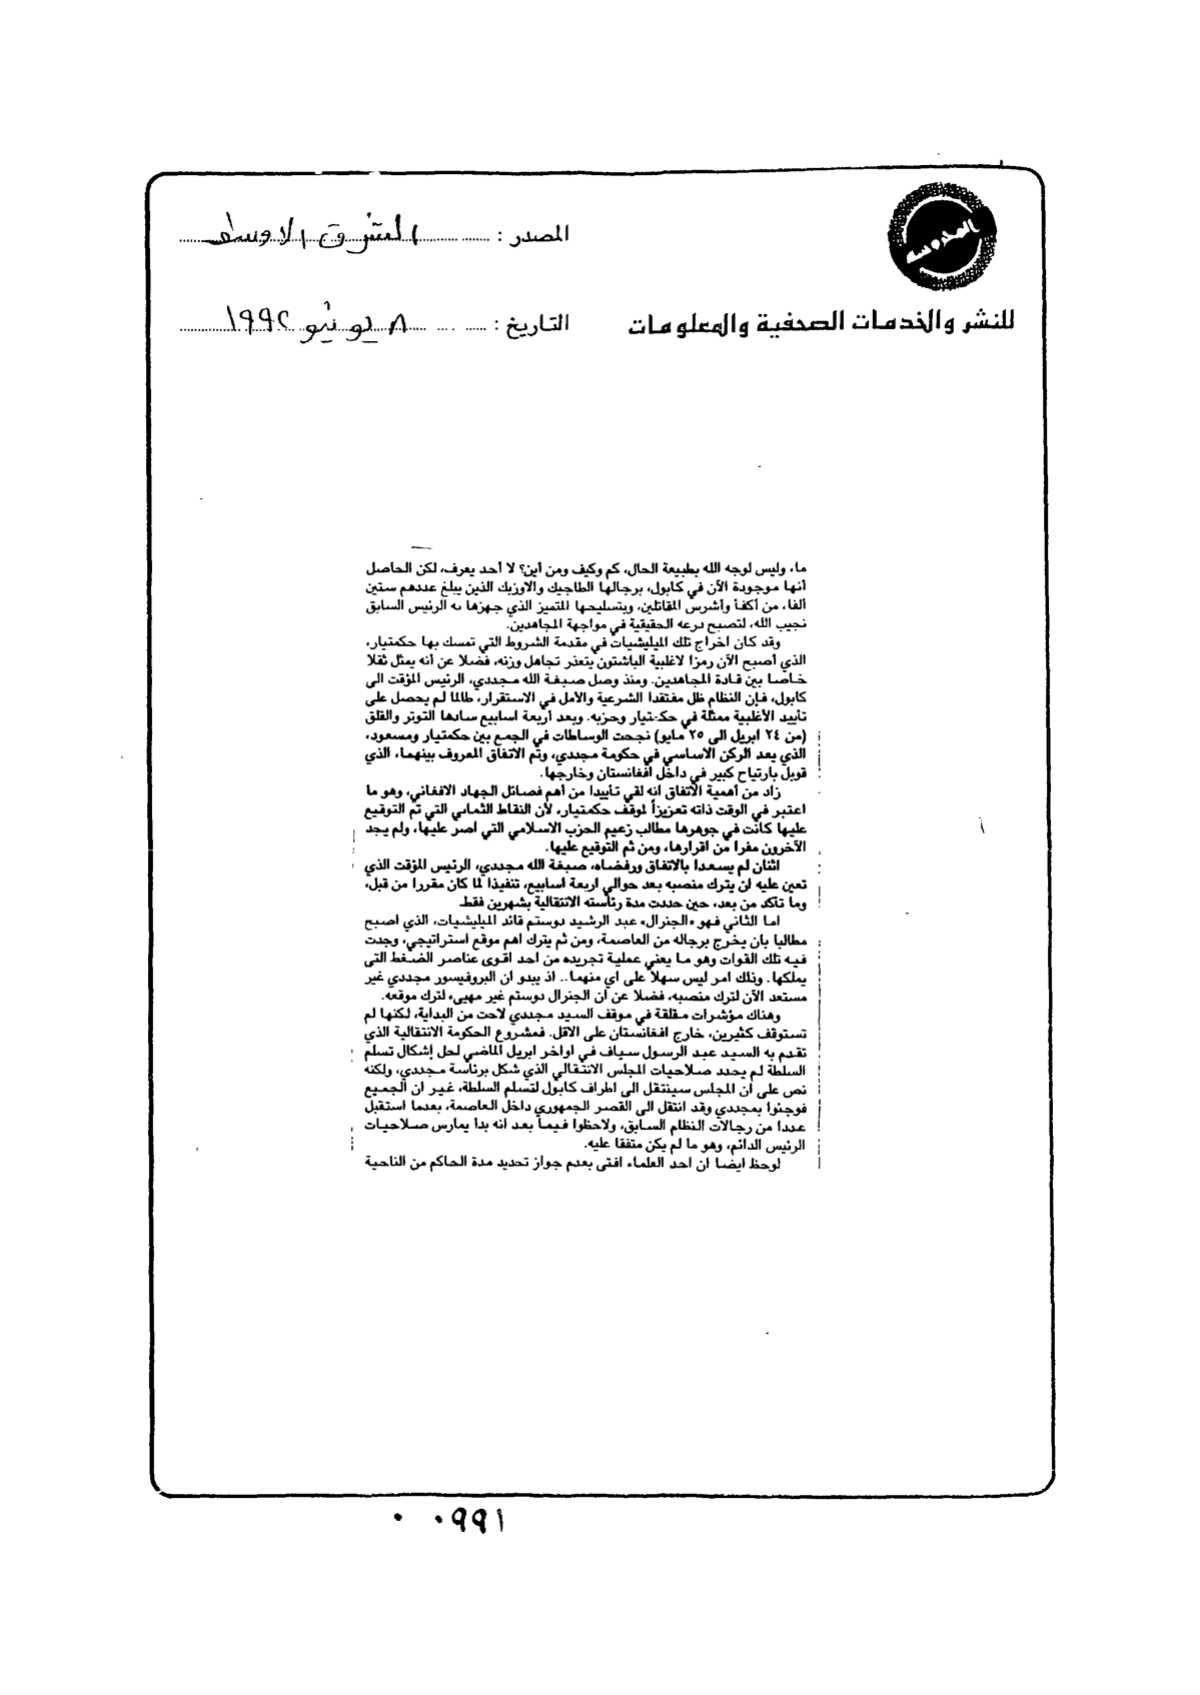 المدوسه
المصدر : الشرق الاوسط
للنشر والخدمات الصحفية والمعلومات
التاريخ : ٨ يونيو ١٩٩٢
ما، وليس لوجه الله بطبيعة الحال، كم وكيف ومن أين؟ لا أحد يعرف، لكن الحاصل
أنها موجودة الآن في كابول، برجالها الطاجيك والاوزبك الذين يبلغ عددهم ستين
ألفا، من أكفأ وأشرس المقاتلين، وبتسليحها المتميز الذي جهزها به الرئيس السابق
نجيب الله، لتصبح درعه الحقيقية في مواجهة المجاهدين.
وقد كان اخراج تلك الميليشيات في مقدمة الشروط التي تمسك بها حكمتيار،
الذي أصبح الآن رمزا لاغلبية الباشتون يتعذر تجاهل وزنه، فضلا عن أنه يمثل ثقلا
خاصا بين قادة المجاهدين. ومنذ وصل صبغة الله مجددي، الرئيس المؤقت الى
كابول، فإن النظام ظل مفتقدا الشرعية والأمل في الاستقرار، طالما لم يحصل على
تأييد الأغلبية ممثلة في حكمتيار وحزبه. وبعد أربعة اسابيع سادها التوتر والقلق
(من ٢٤ ابريل الى ٢٥ مايو) نجحت الوساطات في الجمع بين حكمتيار ومسعود،
الذي يعد الركن الاساسي في حكومة مجددي، وتم الاتفاق المعروف بينهما، الذي
قوبل بارتياح كبير في داخل أفغانستان وخارجها.
زاد من أهمية الاتفاق انه لقي تأييدا من أهم فصائل الجهاد الافغاني، وهو ما
اعتبر في الوقت ذاته تعزيزاً لموقف حكمتيار، لأن النقاط الثماني التي تم التوقيع
عليها كانت في جوهرها مطالب زعيم الحزب الاسلامي التي اصر عليها، ولم يجد
الآخرون مفرا من اقرارها، ومن ثم التوقيع عليها.
اثنان لم يسعدا بالاتفاق ورفضاه، صبغة الله مجددي، الرئيس المؤقت الذي
تعين عليه ان يترك منصبه بعد حوالي اربعة اسابيع، تنفيذا لما كان مقررا من قبل،
وما تأكد من بعد، حين حددت مدة رئاسته الانتقالية بشهرين فقط.
اما الثاني فهو «الجنرال» عبد الرشيد دوستم قائد الميليشيات، الذي اصبح
مطالبا بان يخرج برجاله من العاصمة، ومن ثم يترك اهم موقع استراتيجي، وجدت
فيه تلك القوات وهو ما يعني عملية تجريده من احد اقوى عناصر الضغط التى
يملكها. وذلك امر ليس سهلاً على اي منهما.. اذ يبدو ان البروفيسور مجددي غير
مستعد الآن لترك منصبه، فضلا عن ان الجنرال دوستم غير مهيىء لترك موقعه.
وهناك مؤشرات مقلقة في موقف السيد مجددي لاحت من البداية، لكنها لم
تستوقف كثيرين، خارج افغانستان على الاقل. فمشروع الحكومة الانتقالية الذي
تقدم به السيد عبد الرسول سياف في اواخر ابريل الماضي لحل إشكال تسلم
السلطة لم يحدد صلاحيات المجلس الانتقالي الذي شكل برئاسة مجددي، ولكنه
نص على ان المجلس سينتقل الى اطراف كابول لتسلم السلطة، غير ان الجميع
فوجئوا بمجددي وقد انتقل الى القصر الجمهوري داخل العاصمة، بعدما استقبل
عددا من رجالات النظام السابق، ولاحظوا فيما بعد انه بدا يمارس صلاحيات
الرئيس الدائم، وهو ما لم يكن متفقا عليه.
لوحظ ايضا ان احد العلماء افتى بعدم جواز تحديد مدة الحاكم من الناحية
٠٠٩٩١